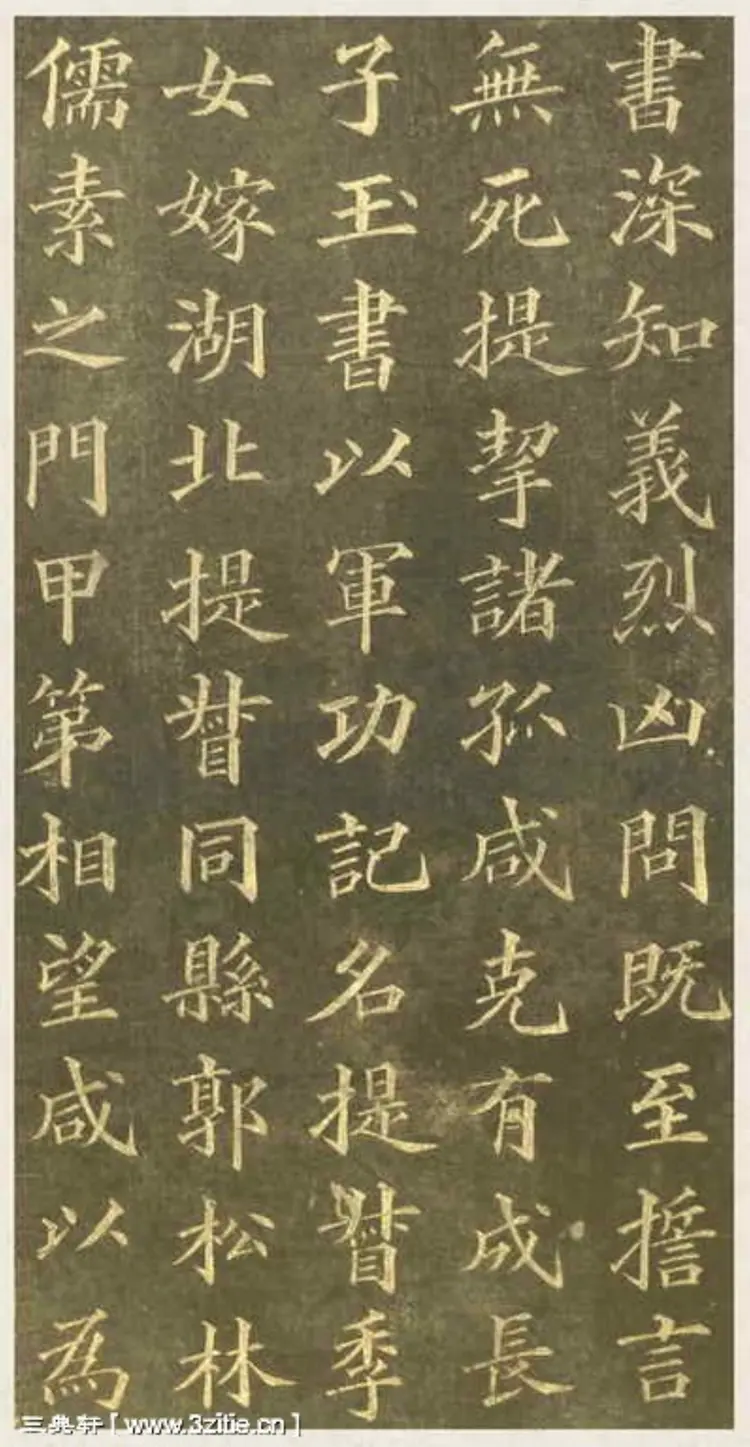 書深知義烈凶問既至誓言
無死提挈諸孤咸克有成長
子玉書以軍功記名提督季
女嫁湖北提督同縣郭松林
儒素之門甲第相望咸以為
三典轩[www.3zitie.cn]